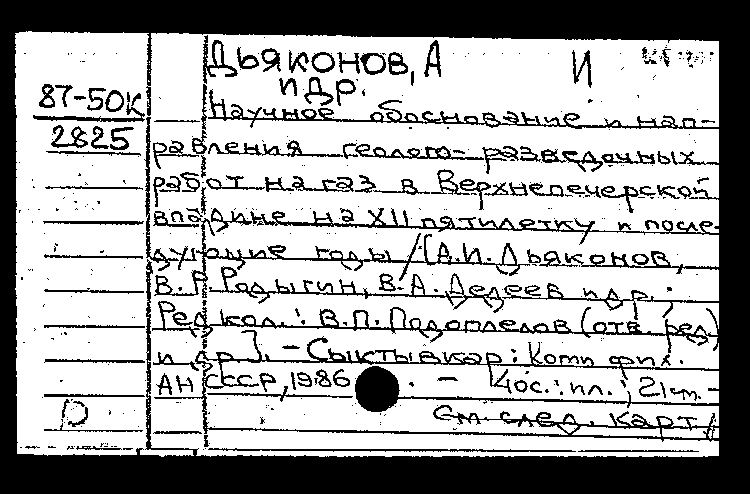 Дьяконов, А И
и др.
87-50К
2825
Научное обоснование и нап-
равления геолого-разведочных
работ на газ в Верхнепечерской
впадине на XII пятилетку и после-
дующие годы /[А.И. Дьяконов,
В.Р. Родыгин, В.А. Дедеев и др.;
Редкол.: В.П. Подоплелов (отв. ред.)
и др.]. - Сыктывкар: Коми фил.
АН СССР, 1986. - 40с.: ил.; 21см. -
См. след. карт.